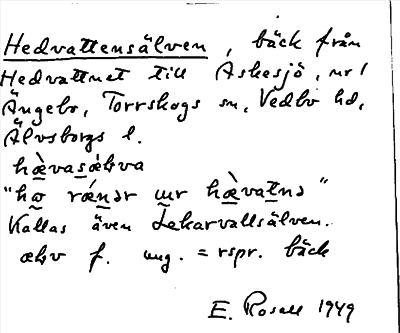 Hedvattensälven, bäck från
Hedvattnet till Askesjö, nr 1
Ängebo, Torrskogs sn, Vedbo hd,
Älvsborgs l.
hæ̀vasæḷva
"ho rǽnər ur hæ̀vatnə"
Kallas även Lekarvallsälven.
æḷv f. ung. = rspr. bäck
E. Rosell 1949